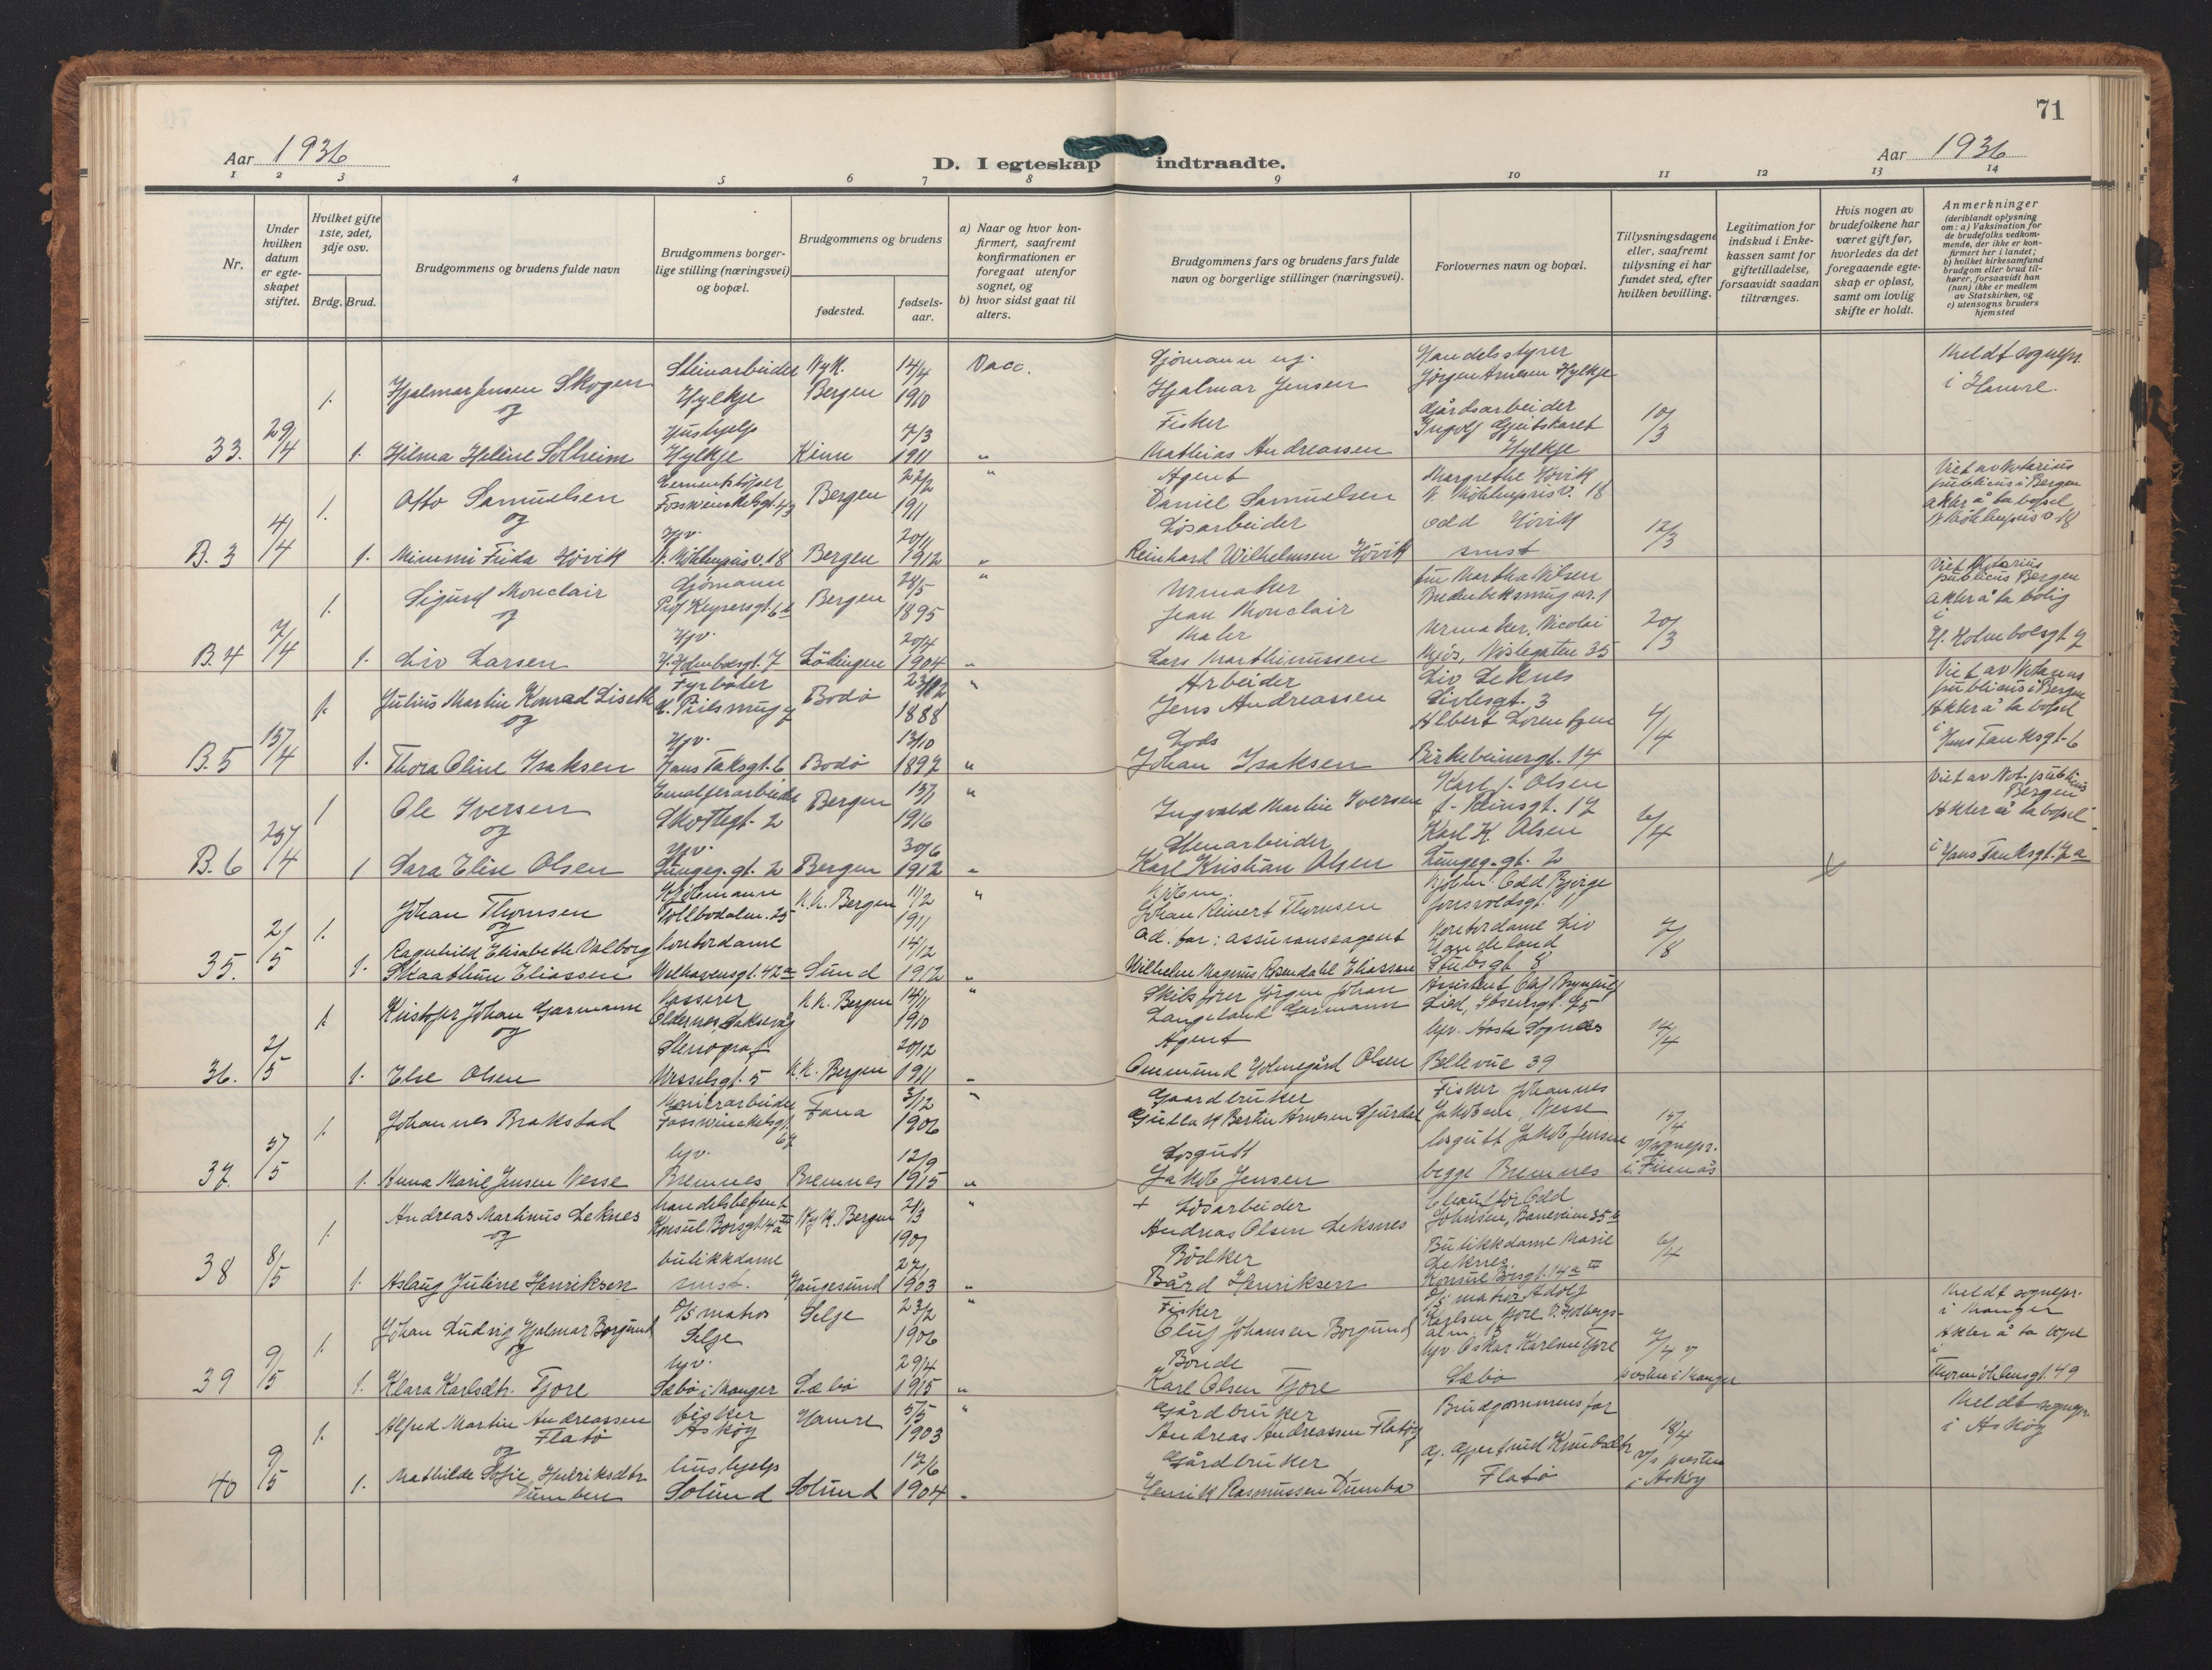 71
Aar 1936
D. I egteskap indtraadte.
Aar 1936
1 2 3 4 5 6 7 8 9 10 11 12 13 14
Nr.
Under hvilken datum er egteskapet stiftet.
Hvilket gifte 1ste, 2det, 3dje osv.
Brdg. Brud.
Brudgommens og brudens fulde navn
Brudgommens borgerlige stilling (næringsvei) og bopæl.
Brudgommens og brudens
fødested.
fødselsaar.
a) Naar og hvor konfirmert, saafremt konfirmationen er foregaat utenfor sognet, og
b) hvor sidst gaat til alters.
Brudgommens fars og brudens fars fulde navn og borgerlige stillinger (næringsvei).
Forlovernes navn og bopæl.
Tillysningsdagene eller, saafremt tillysning ei har fundet sted, efter hvilken bevilling.
Legitimation for indskud i Enkekassen samt for giftetilladelse, forsaavidt saadan tiltrænges.
Hvis nogen av brudefolkene har været gift før, hvorledes da det foregaaende egteskap er opløst, samt om lovlig skifte er holdt.
Anmerkninger
(deriblandt oplysning om: a) Vaksination for de brudefolks vedkommende, der ikke er konfirmert her i landet; b) hvilket kirkesamfund brudgom eller brud tilhører, forsaavidt han (hun) ikke er medlem av Statskirken, og c) utensogns bruders hjemsted
33. 29/4 1. Hjalmar Jensen Skogen Steinarbeider Hylkje Nyk. Bergen 14/4 1910 Vacc. Sjømann Hjalmar Jensen Handelsstyrer Jørgen Arnesen Hylkje Meldt sognepr. i Hamre.
og
1. Hilma Heline Solheim Hushjelp Hylkje Kinn 7/3 1911 " Fisker Mathias Andreassen Gårdsarbeider Ingolf Hylkje 10/3
B. 3 4/4 1. Otto Samuelsen Fosswinckelsgt. 43 Bergen 22/2 1911 " Agent Daniel Samuelsen Margrethe Hövik N. Möhlenpris v. 18 Viet av Notarius publicus i Bergen akter å ta bopel N. Möhlenpris v. 18
og
1. Mimmi Frida Hövik Hjv. N. Möhlenpris v. 18 Bergen 20/11 1912 " Løsarbeider Reinhard Wilhelmsen Hövik Odd Hövik smst 12/3
B. 4 7/4 1. Sigurd Monclair Sjømann Prof Keysersgt. 6b Bergen 24/5 1895 " Urmaker Jean Monclair fru Martha Nilsen nr. 1 Viet Notarius publicus Bergen akter å ta bolig i H. Holmboesgt 7
og
1. Liv Larsen Hjv. H. Holmboesgt. 7 Lødingen 20/4 1904 " Maler Lars Marthinussen Urmaker Nicolai Nøstegaten 35 20/3
B. 5 15/4 1. Julius Martin Konrad Liseth Fyrbøter Bodø 1888 " Arbeider Jens Andreassen Liv Leknes 3 Viet av Notarius publicus i Bergen Akter å ta bopel i Hans Tanksgt. 6
og
1. Thora Oline Isaksen Hjv. Hans Taksgt. 6 Bodø 13/10 1897 " Lods Johan Isaksen Albert Lorentzen Birkebeinergt. 14 4/4
B. 6 25/4 1 Ole Iversen 2 Bergen 15/1 1916 " Ingvald Martin Iversen Karl J. Olsen 17 Viet av Not. publicus Bergen Akter å ta bopel i Hans Tanksgt. 7a
og
1 Sara Elise Olsen Hjv. Lungeg. gt. 2 Bergen 30/6 1912 " Stenarbeider Karl Kristian Olsen Karl K. Olsen Lungeg. gt. 2 6/4
35. 2/5 1. Johan Thomsen Kjøbmann Tollbodalm. 25 N. k. Bergen 11/2 1911 " Kjøbm. Johan Reinert Thomsen Kjøbm. Odd Bjørge
og
1. Ragnhild Elisabeth Valborg Skaathun Eliassen Kontordame Welhavensgt. 42a Sund 14/12 1912 " Ad. far: assuranseagent Wilhelm Magnus Rosendahl Eliassen Kontordame Liv Haugeland Stubsgt 8 2/8
36. 2/5 1. Kristofer Johan Garmann Kasserer Laksevåg N. k. Bergen 14/11 1910 " Skibsfører Jørgen Johan Langeland Garmann Assistent Olaf Lied, Ibsensgt. 75
og
1. Else Olsen Stenograf 5 N. k. Bergen 20/12 1911 " Agent Ommund Holmegård Olsen hjv. Aasta Sognnes Bellevue 39 14/4
37. 3/5 1. Johannes Brakstad Fosswinckelsgt. 67 Fana 3/12 1906 " Gaardbruker Fisker Johannes Jakobsen Nesse 15/4 v/sognepr. i Finnås
1. Anna Marie Jensen Nesse hjv. Bremnes Bremnes 12/9 1915 " Losgutt Jakob Jensen losgutt Jakob Jensen begge Bremnes
38 8/5 1. Andreas Martinus Leknes handelsbetjent Konsul Börsgt. 14a III Ny K. Bergen 2/3 1907 " + Løsarbeider Andreas Olsen Leknes Chauffør Odd Johnsen, Baneveien 35b
og
1. Aslaug Juline Henriksen butikkdame smst. Haugesund 1903 " Bødker Bård Henriksen Butikkdame Marie Leknes Konsul Börsgt. 14a III 6/4
39 9/5 1. Johan Ludvig Hjalmar Borgund D/S matros Selje Selje 23/2 1906 " Fisker Oluf Johansen Borgund D/S matros Adolf Karlsen Meldt sognepr. i Manger Akter å ta bopel i Thormöhlensgt. 49
og
1. Klara Karlsdtr. Fjore hjv. Sæbø i Manger Sæbø 29/4 1915 " Bonde Karl Olsen Fjore hjv. Oskar Karlsen Fjore Sæbø 7/4 v presten i Manger
40 9/5 1. Alfred Martin Andreassen Flatö fisker Askøy Hamre 5/5 1903 " Gårdbruker Andreas Andreassen Flatøy Brudgommens far Meldt sognepr. i Askøy
og
1. Mathilde Sofie Henriksdtr. hushjelp Solund Solund 17/6 1904 " Gårdbruker Henrik Rasmussen Dumbo Gjertrud Knutsdtr Flatö 18/4 v/s presten i Askøy